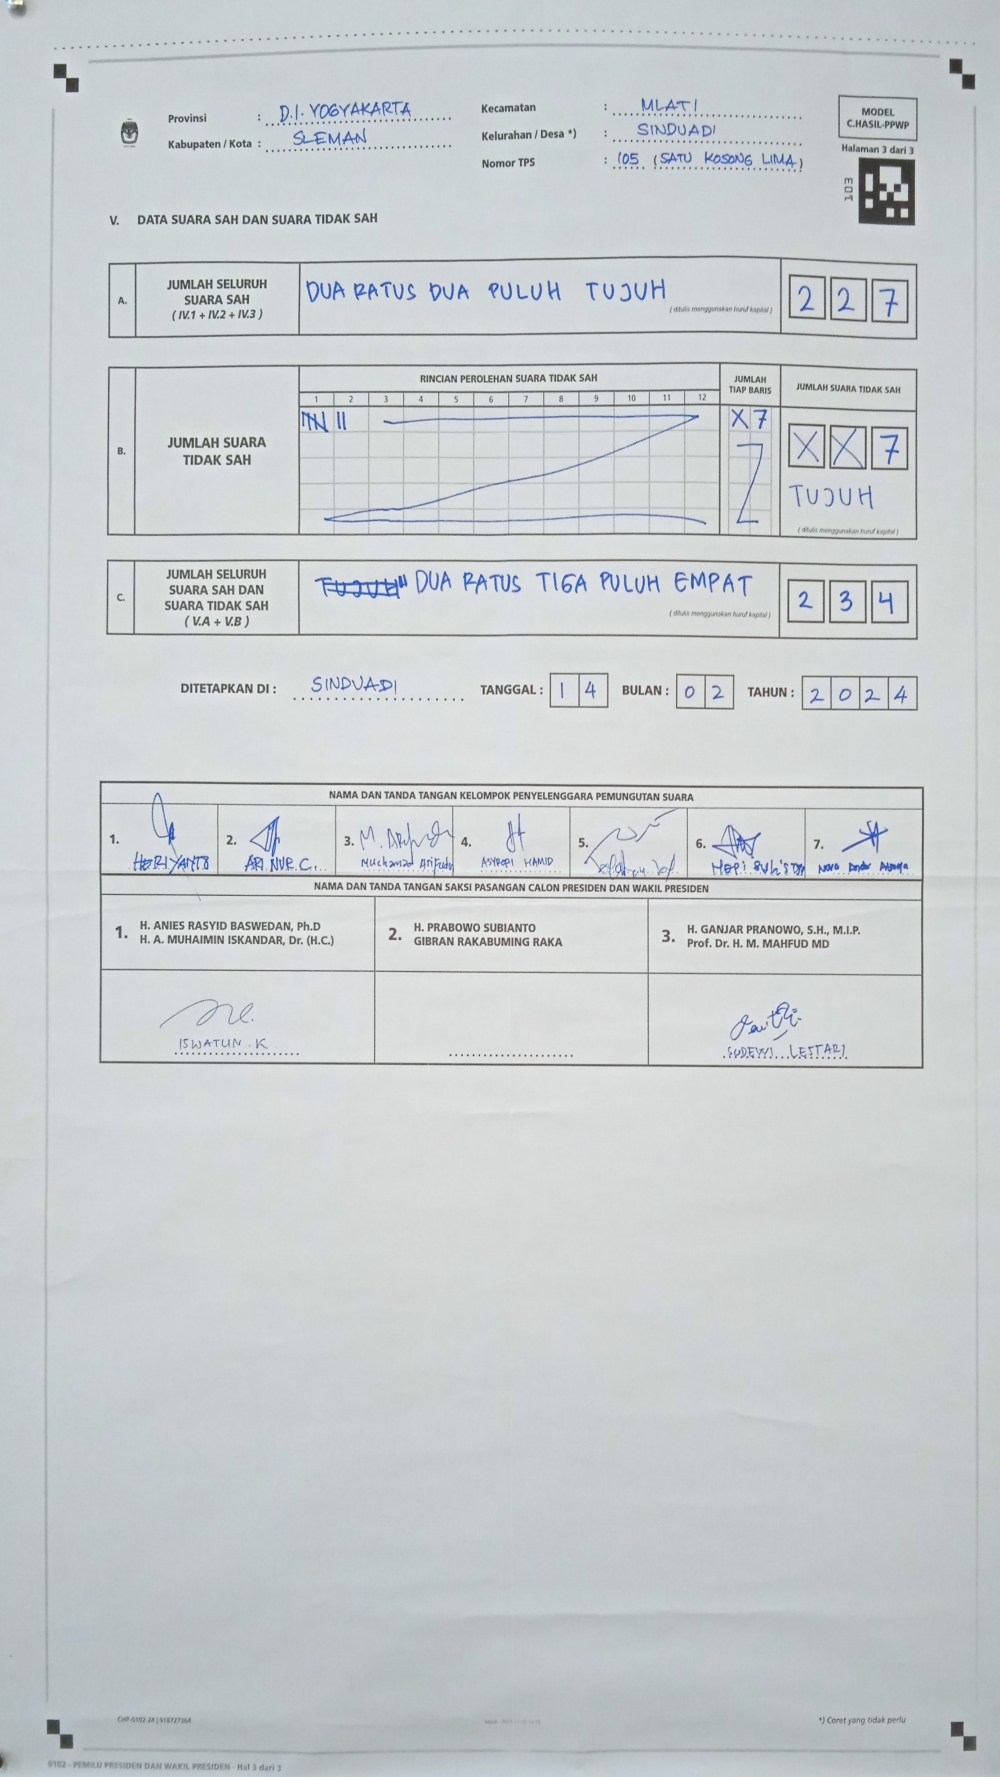 Provinsi : D.I. YOGYAKARTA
Kabupaten / Kota : SLEMAN
Kecamatan : MLATI
Kelurahan / Desa *) : SINDUADI
Nomor TPS : 105 (SATU KOSONG LIMA)
MODEL
C.HASIL-PPWP
Halaman 3 dari 3
V. DATA SUARA SAH DAN SUARA TIDAK SAH
A. JUMLAH SELURUH SUARA SAH ( IV.1 + IV.2 + IV.3 )
DUA RATUS DUA PULUH TUJUH
( ditulis menggunakan huruf kapital )
2 2 7
B. JUMLAH SUARA TIDAK SAH
RINCIAN PEROLEHAN SUARA TIDAK SAH
1 2 3 4 5 6 7 8 9 10 11 12
JUMLAH TIAP BARIS
X 7
JUMLAH SUARA TIDAK SAH
X X 7
TUJUH
( ditulis menggunakan huruf kapital )
C. JUMLAH SELURUH SUARA SAH DAN SUARA TIDAK SAH ( V.A + V.B )
DUA RATUS TIGA PULUH EMPAT
( ditulis menggunakan huruf kapital )
2 3 4
DITETAPKAN DI : SINDUADI TANGGAL : 1 4 BULAN : 0 2 TAHUN : 2 0 2 4
NAMA DAN TANDA TANGAN KELOMPOK PENYELENGGARA PEMUNGUTAN SUARA
1. HERIYANTO
2. ARI NUR C.
3.
4. ASYROFI HAMID
5.
6.
7.
NAMA DAN TANDA TANGAN SAKSI PASANGAN CALON PRESIDEN DAN WAKIL PRESIDEN
1. H. ANIES RASYID BASWEDAN, Ph.D
H. A. MUHAIMIN ISKANDAR, Dr. (H.C.)
2. H. PRABOWO SUBIANTO
GIBRAN RAKABUMING RAKA
3. H. GANJAR PRANOWO, S.H., M.I.P.
Prof. Dr. H. M. MAHFUD MD
ISWATUN . K
SUDEWI LESTARI
*) Coret yang tidak perlu
0102 - PEMILU PRESIDEN DAN WAKIL PRESIDEN - Hal 3 dari 3